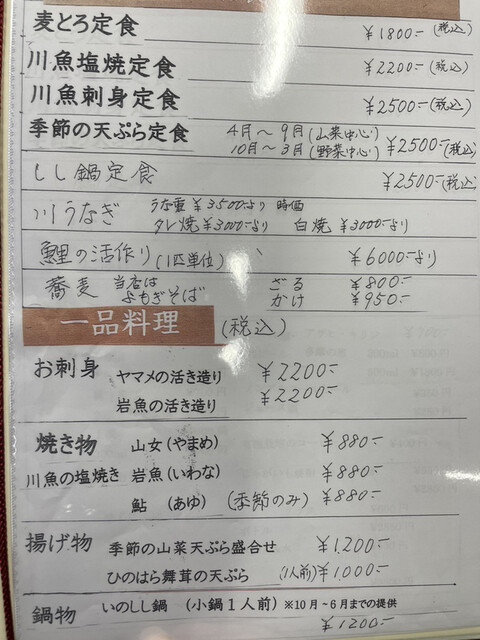 麦とろ定食 ¥1800-(税込)
川魚塩焼定食 ¥2200-(税込)
川魚刺身定食 ¥2500-(税込)
季節の天ぷら定食 4月〜9月(山菜中心) ¥2500-(税込)
10月〜3月(野菜中心)
しし鍋定食 ¥2500-(税込)
川うなぎ うな重¥3500より 時価
タレ焼¥3000より 白焼 ¥3000より
鯉の活作り(1匹単位) ¥6000より
蕎麦 当店は ざる ¥800-
よもぎそば かけ ¥950-
一品料理 (税込)
お刺身 ヤマメの活き造り ¥2200-
岩魚の活き造り ¥2200-
焼き物 山女(やまめ) ¥880-
川魚の塩焼き 岩魚(いわな) ¥880-
鮎 (あゆ) (季節のみ) ¥880-
揚げ物 季節の山菜天ぷら盛合せ ¥1,200-
ひのはら舞茸の天ぷら (1人前) ¥1,000-
鍋物 いのしし鍋 (小鍋1人前) ※10月~6月までの提供
¥1200-